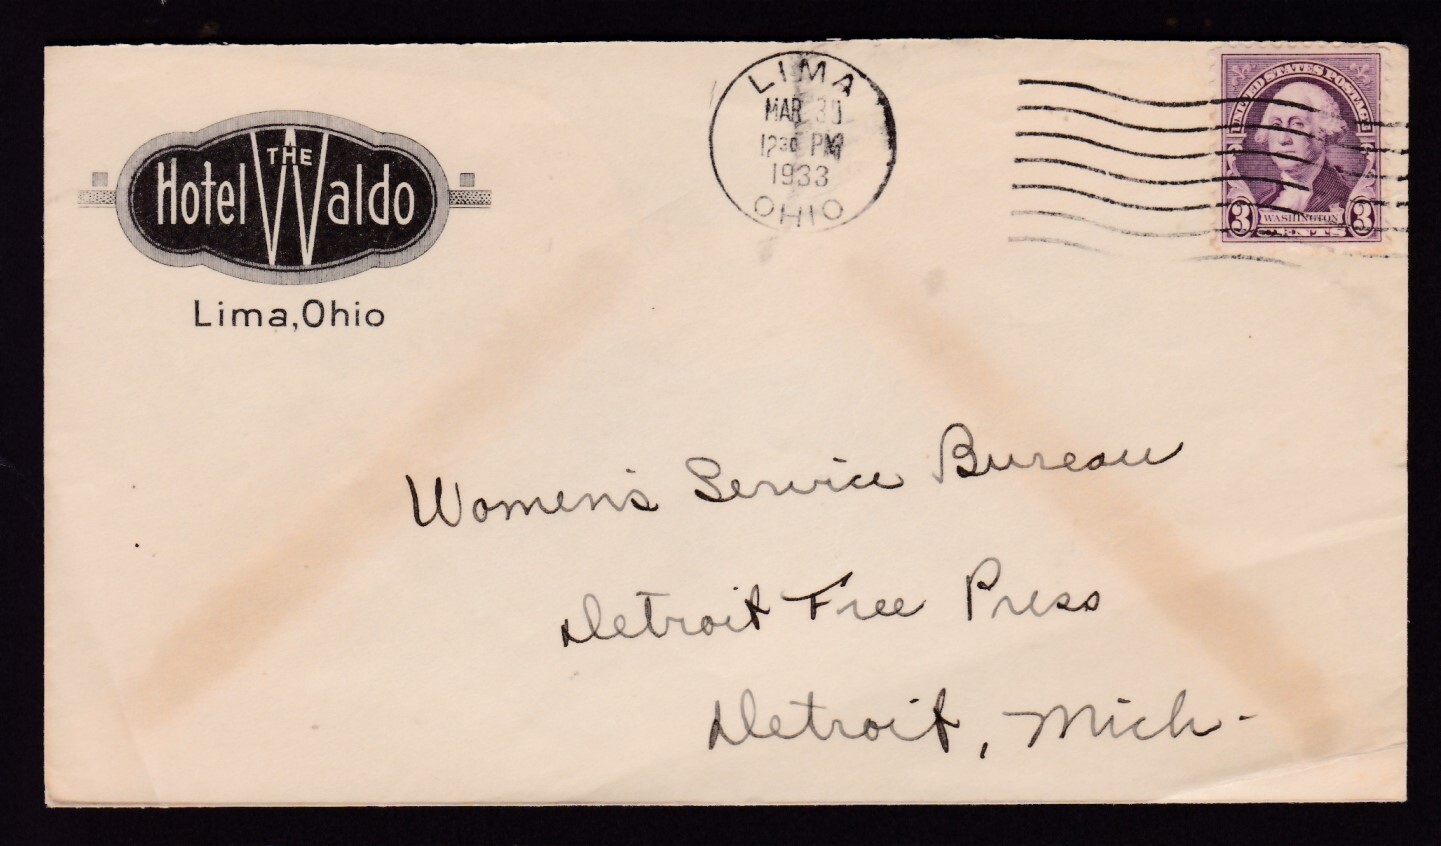 THE
Hotel Waldo
Lima, Ohio
LIMA
MAR 30
12 30 PM
1933
OHIO
UNITED STATES POSTAGE
3 WASHINGTON 3
CENTS
Women's Service Bureau
Detroit Free Press
Detroit, Mich-